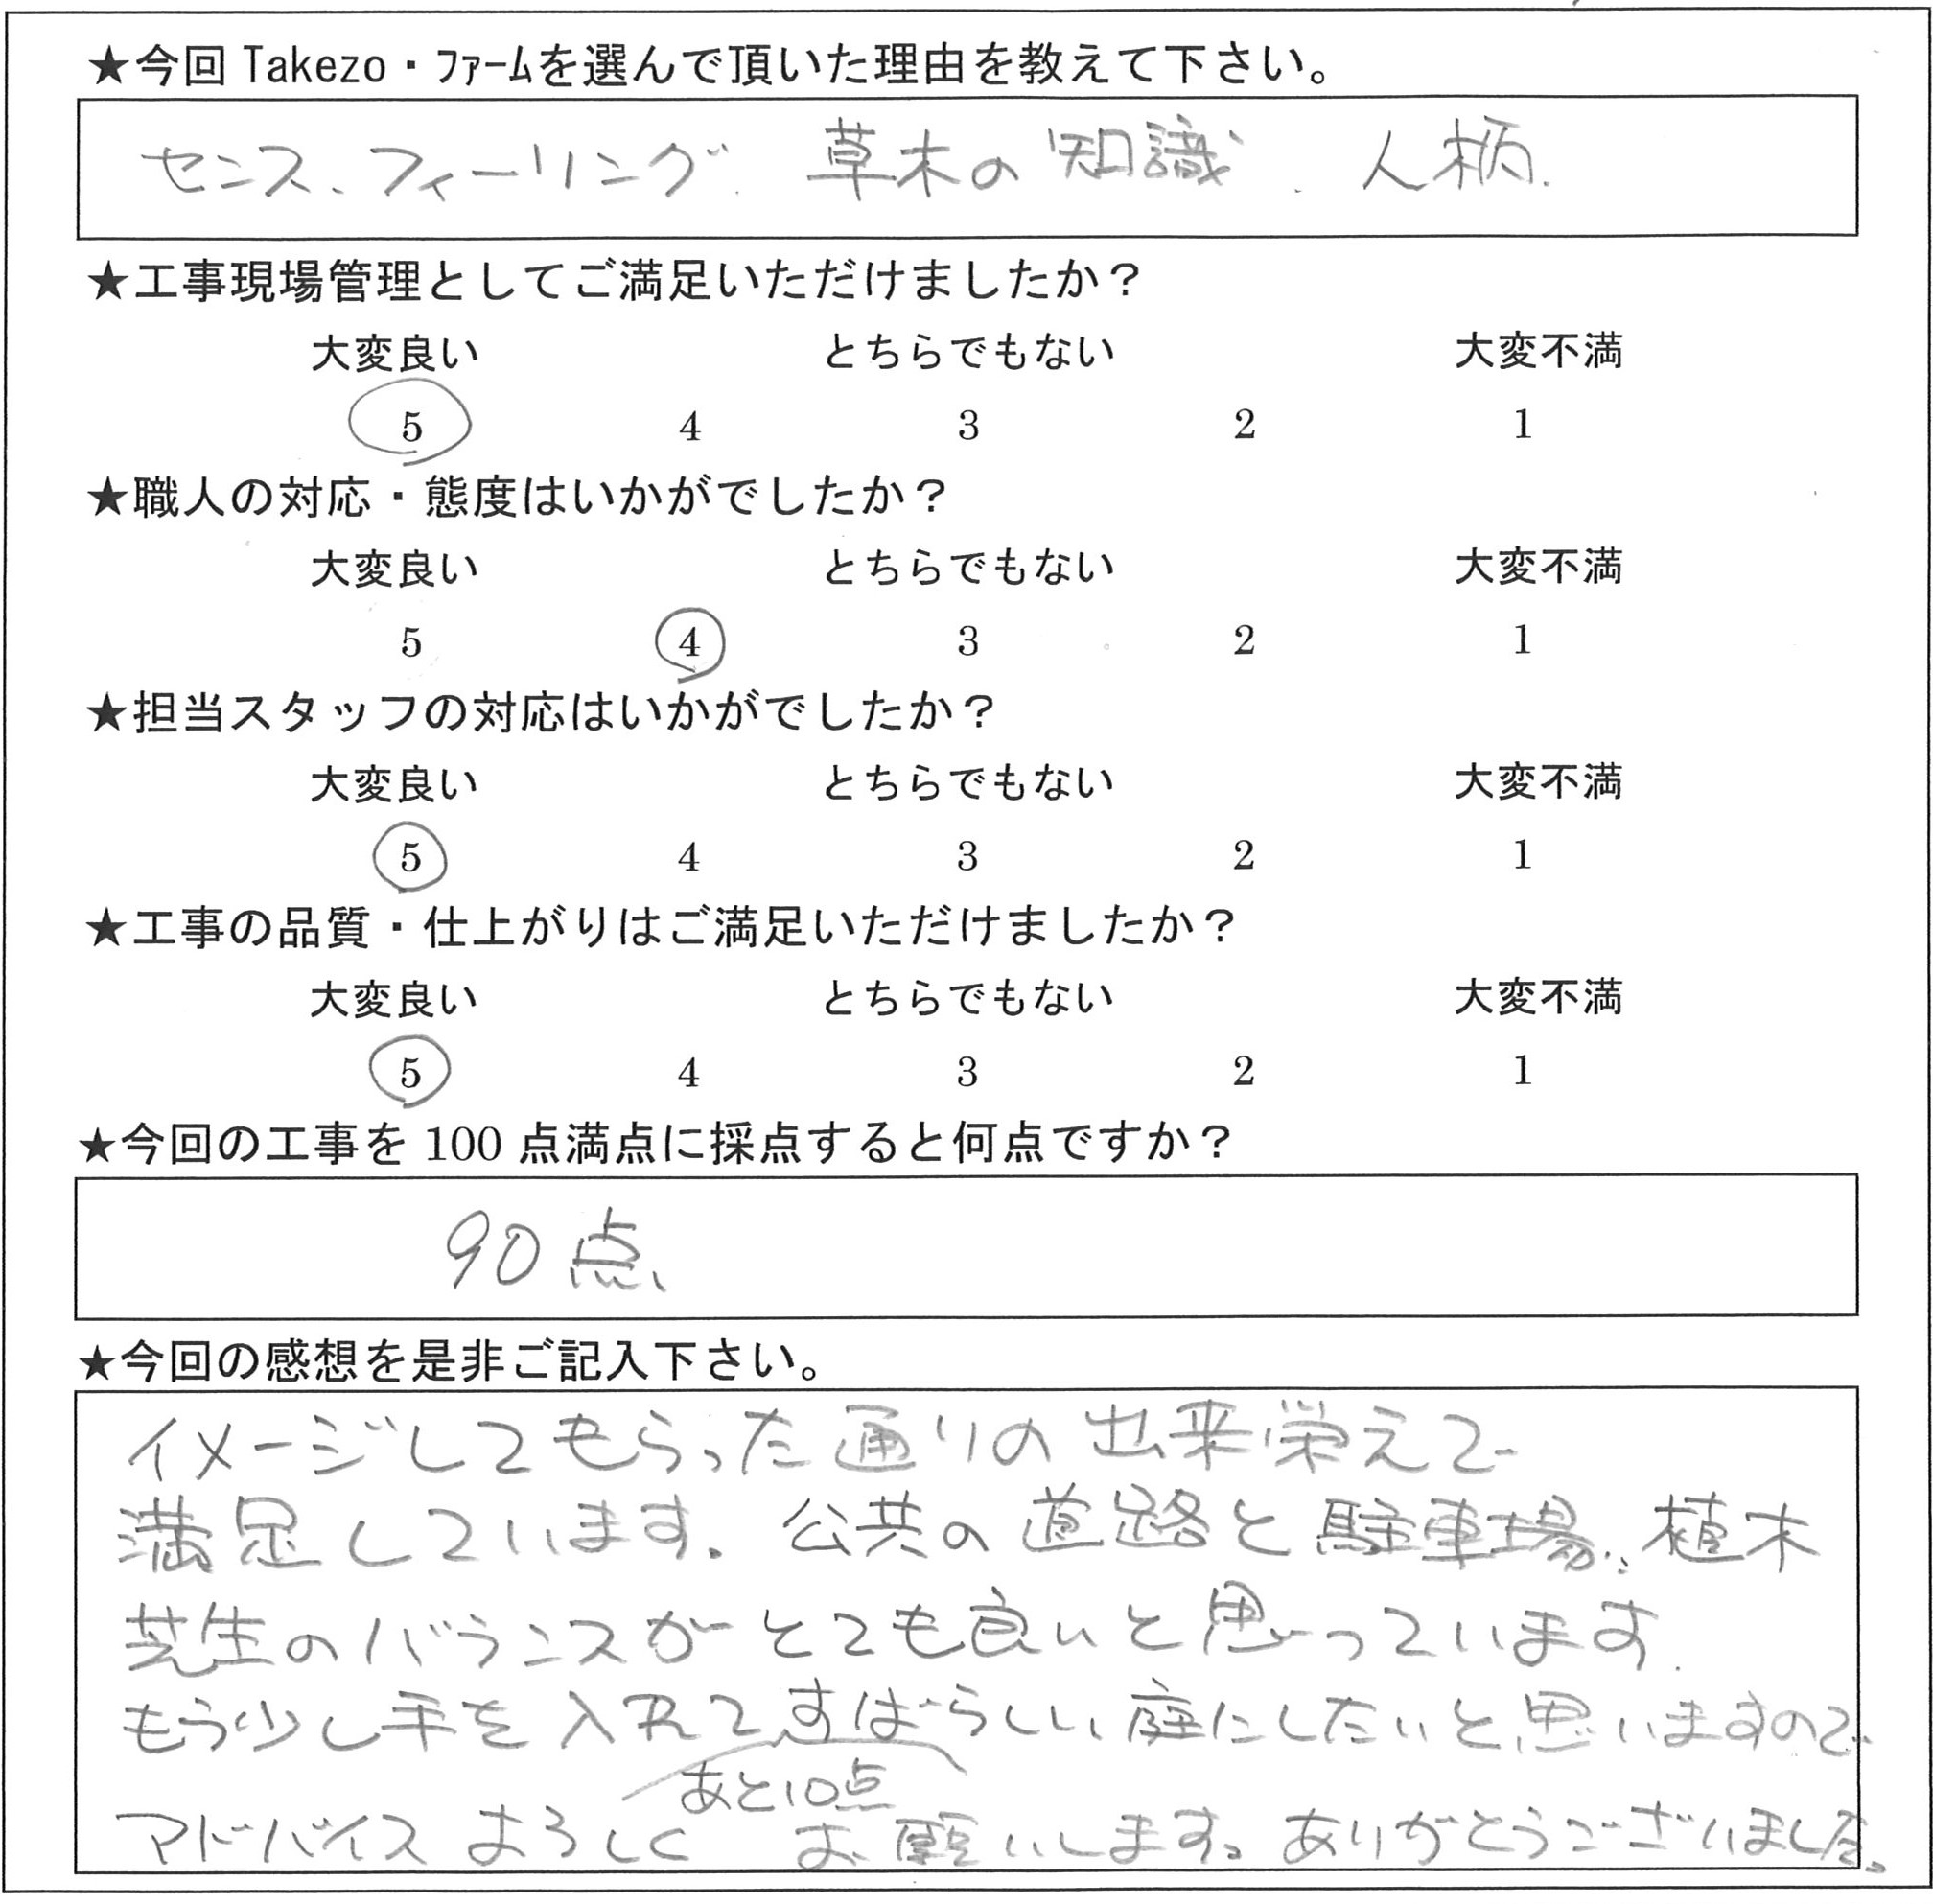 ★今回 Takezo・ファームを選んで頂いた理由を教えて下さい。
センス、フィーリング. 草木の知識. 人柄.
★工事現場管理としてご満足いただけましたか？
大変良い とちらでもない 大変不満
5 4 3 2 1
★職人の対応・態度はいかがでしたか？
大変良い とちらでもない 大変不満
5 4 3 2 1
★担当スタッフの対応はいかがでしたか？
大変良い とちらでもない 大変不満
5 4 3 2 1
★工事の品質・仕上がりはご満足いただけましたか？
大変良い とちらでもない 大変不満
5 4 3 2 1
★今回の工事を 100 点満点に採点すると何点ですか？
90点、
★今回の感想を是非ご記入下さい。
イメージしてもらった通りの出来栄えで
満足しています。公共の道路と駐車場、植木
芝生のバランスがとても良いと思っています.
もう少し手を入れてすばらしい庭にしたいと思いますので
あと10点
アドバイスよろしくお願いします。ありがとうございました。